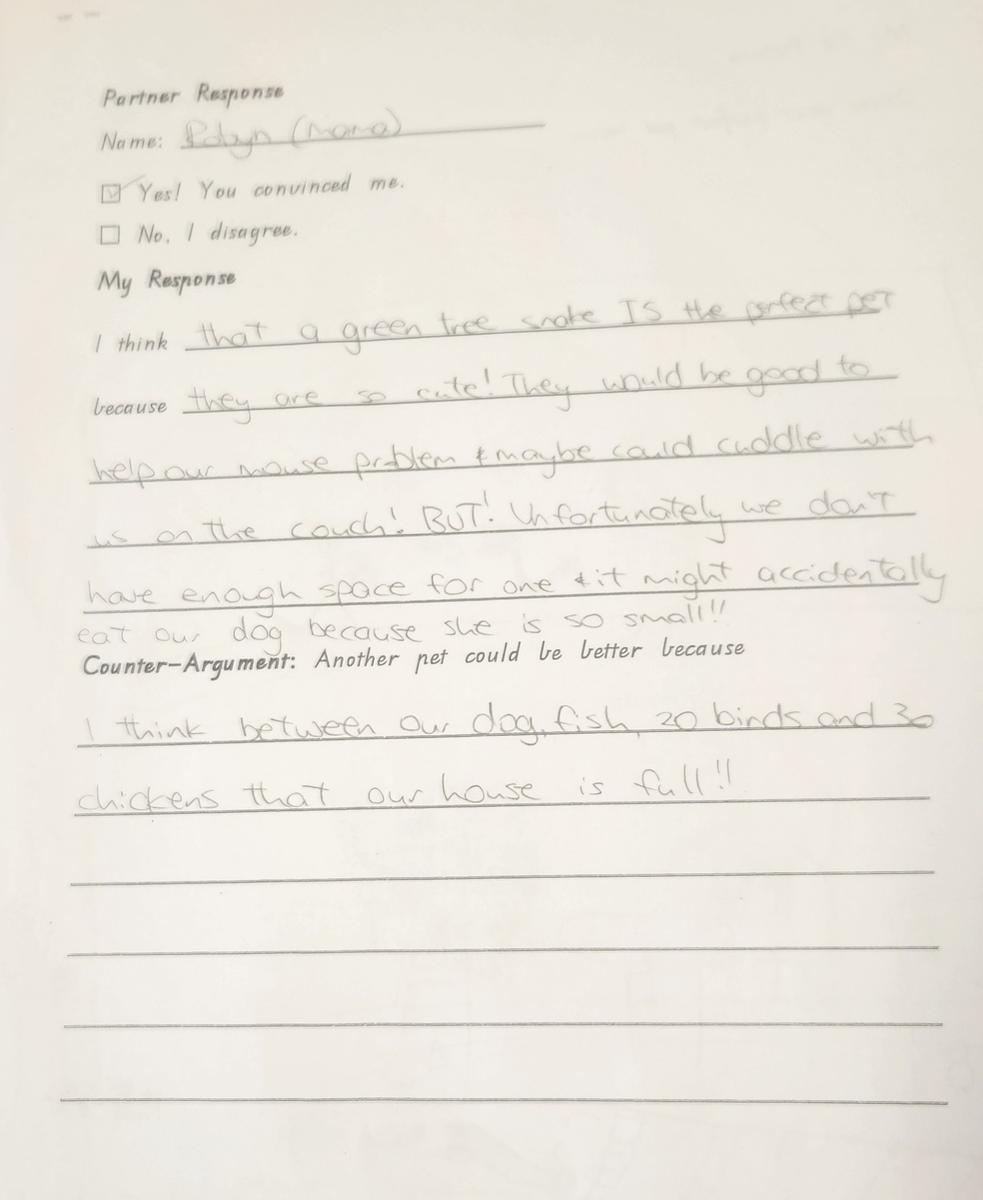 Partner Response
Name: Robyn (Mama)
Yes! You convinced me.
No, I disagree.
My Response
I think that a green tree snake IS the perfect pet
because they are so cute! They would be good to
help our mouse problem & maybe could cuddle with
us on the couch! BUT! Unfortunately we don't
have enough space for one & it might accidentally
eat our dog because she is so small!!
Counter-Argument: Another pet could be better because
I think between our dog, fish, 20 birds and 30
chickens that our house is full!!